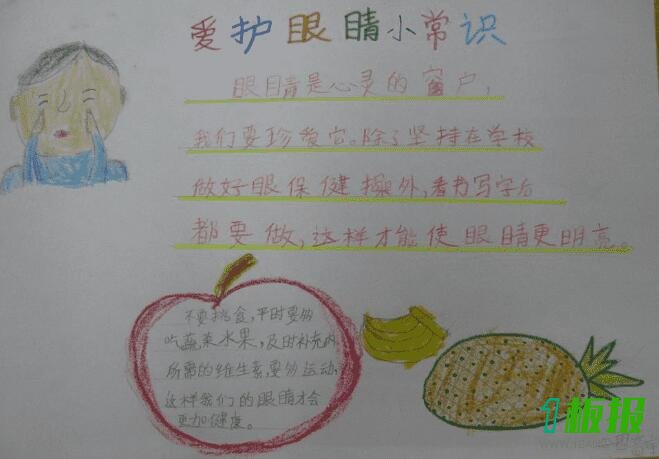 爱护眼睛小常识
眼睛是心灵的窗户，
我们要珍爱它。除了坚持在学校
做好眼保健操外，看书写字后
都要做，这样才能使眼睛更明亮。
不要挑食，平时要多
吃蔬菜水果，及时补充内
所需的维生素，要多运动，
这样我们的眼睛才会
更加健康。
1板报